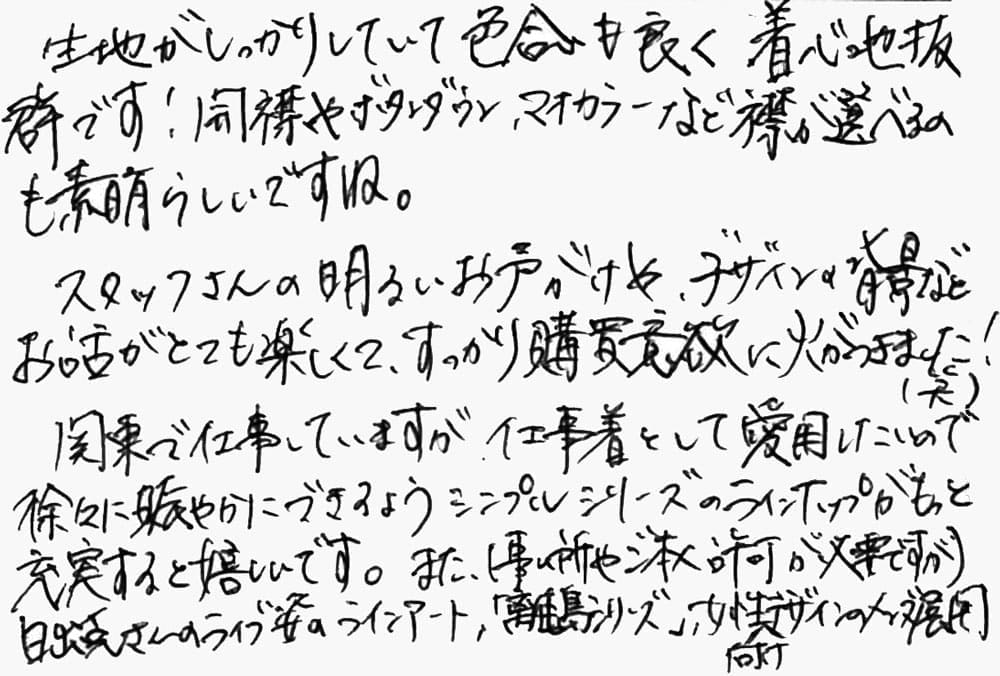 生地がしっかりしていて色合いも良く着心地抜
群です！開襟やボタンダウン、マオカラーなど襟が選べるの
も素晴らしいですね。
スタッフさんの明るいお声がけや、デザインの背景など
お話がとても楽しくて、すっかり購買意欲に火がつきました！
（笑）
関東で仕事していますが、仕事着として愛用したいので
徐々に賑やかにできるようシンプルシリーズのラインナップがもっと
充実すると嬉しいです。また、（事ム所やご本人許可が必要ですが）
さんのライブ姿のラインアート、「離島シリーズ」、女性デザインのメンズ展開
向け